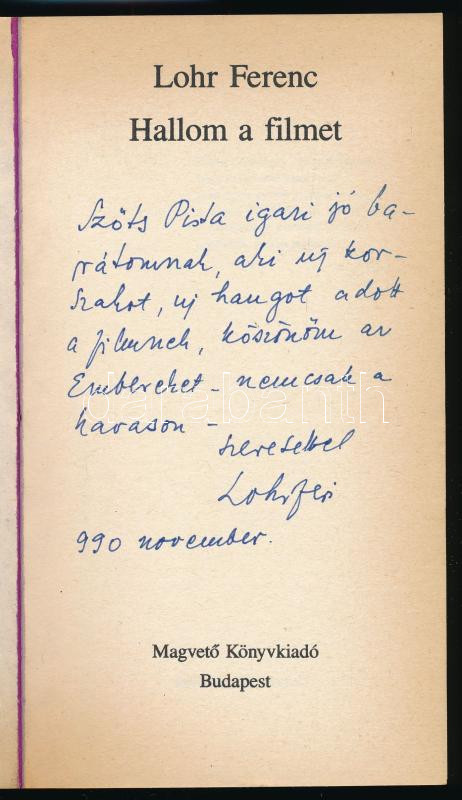 Lohr Ferenc
Hallom a filmet
Szőts Pista igazi jó ba-
rátomnak, aki új kor-
szakot, új hangot adott
a filmnek, köszönöm az
Embereket - nemcsak a
havason -
darabanth
szeretettel
Lohr Feri
990 november.
Magvető Könyvkiadó
Budapest